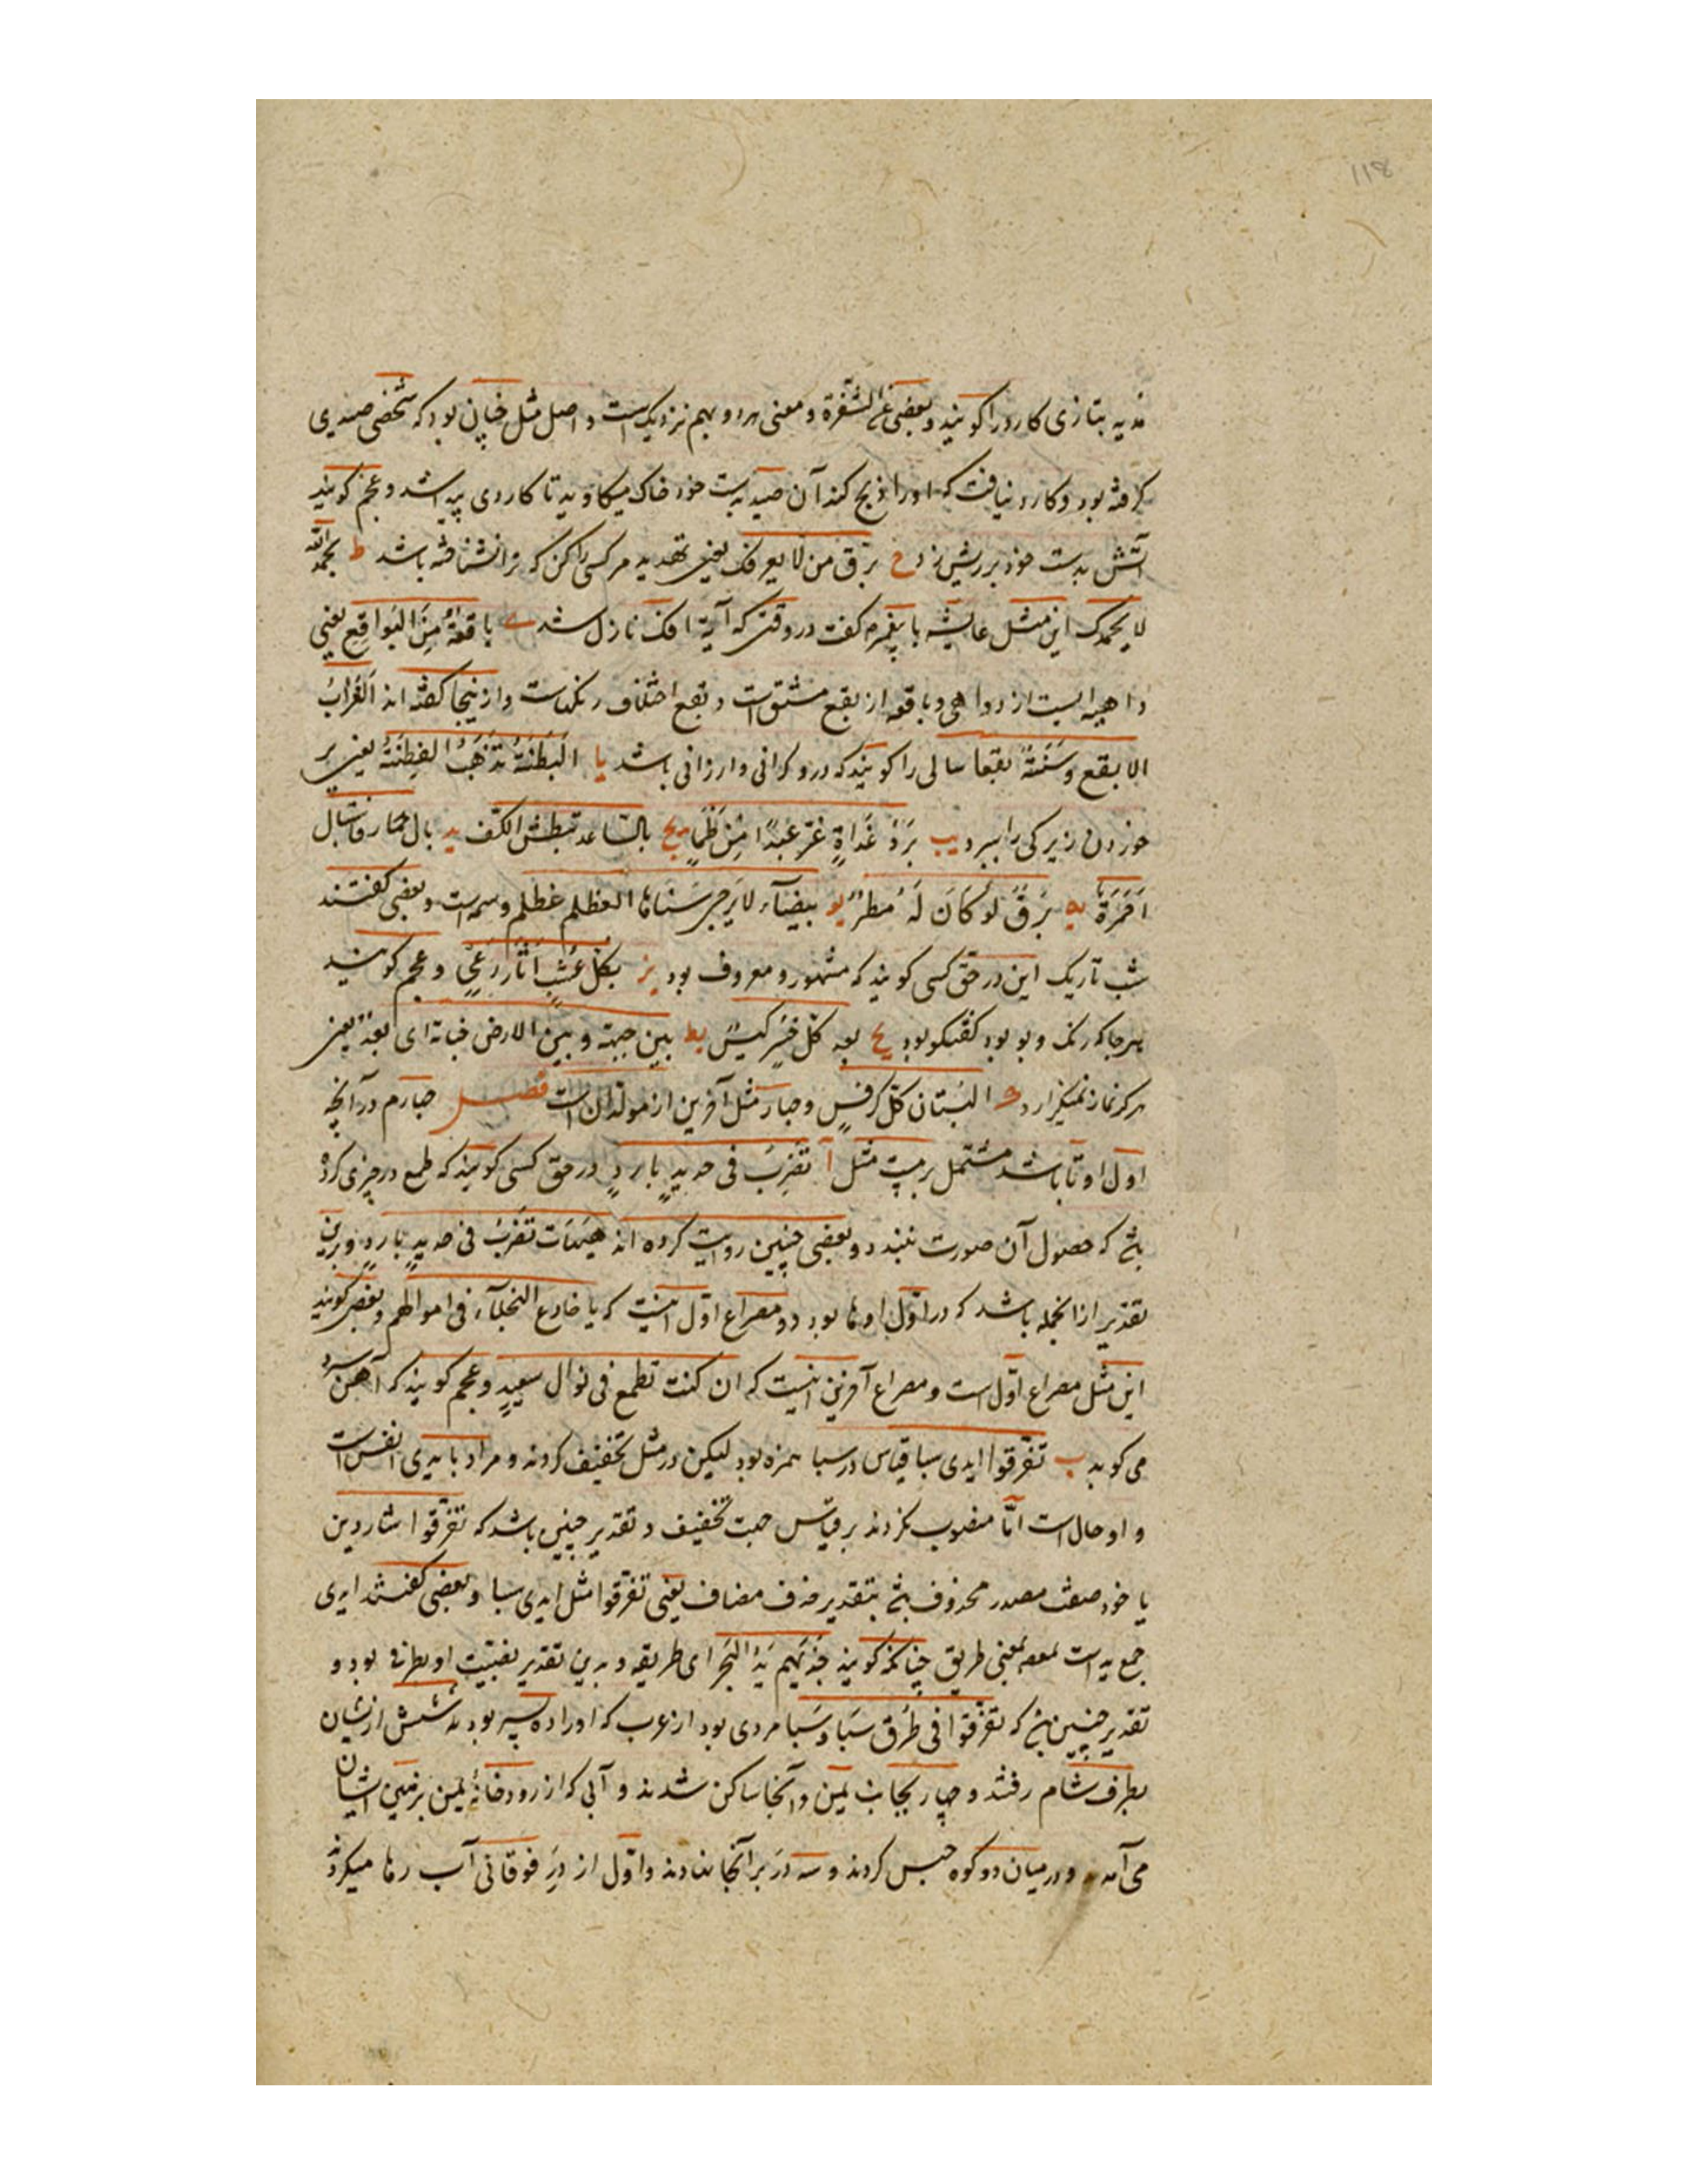 مدیه بتازی کارد را کویند و بعضی عن الشفرة و معنی هر دو بهم نزدیک است و اصل مثل چنان بود که شخصی صیدی
کرفته بود و کارد نیافت که اورا ذبح کند آن صید بدست خود خاک میکاوید تا کاردی پیدا شد و عجم کویند
آتش بدست خود بر ریش زد ح برق من لا یعرفک یعنی تهدید مر کسی را کن که ترا نشناخته باشد ط بحمد الله
لا بحمدک این مثل عایشه با پیغمبر م کفت در وقتی که آیة افک نازل شد ی باقعةٌ مِنَ البَواقِع یعنی
داهیه ایست از دواهی و باقعه از بقع مشتق است و بقع اختلاف رنکهاست و از نیجا کفته اند اَلغُرابُ
الابقع و سَنَةٌ بقعا سالی را کویند که درو کرانی و ارزانی باشد یا البَطنَةُ تَذهَبُ الفِطنَةُ یعنی پر
خوردن زیرکی را ببرد یب بَردُ غَداةٍ غَرَّ عَبدًا مِن ظَمَاٍ یج بالساعد تبطش الکف ید بال حمار فاستبال
اَحمِرَةً یه بَرقٌ لَو کَانَ لَهُ مطرٌ یو بیضآء لا یَرجی سَناها العظلم عظلم وسمه است و بعضی کفتند
شب تاریک این در حق کسی کویند که مشهور و معروف بود یز بکل عُشبٍ اٰثار رَعیٍ و عجم کویند
هر جا که رنک و بو بود کفتکو بود یح بعد کل خُسرٍ کَیسٌ یط بین جبهته و بین الارض جنایة ای بعدٌ یعنی
هرکز نماز نمیکزارد ک البُستان کلّ کرفسٍ و چهار مثل آخرین از مولدان است فصـل چهارم در آنچه
اول او تا باشد مشتمل بر بیست مثل آ تَضرِبُ فی حدیدٍ باردٍ در حق کسی کویند که طمع در چیزی کرده
بشد که حصول آن صورت نبندد و بعضی چنین روایت کرده اند هَیهات تَضرِبُ فی حدیدٍ باردٍ و برین
تقدیر از انجمله باشد که در اوّل او ها بود و مصراع اوّل اینست که یا خادع البخلآء فی اموالهم و بعضی کویند
این مثل مصراع اوّل است و مصراع آخرین اینست که ان کنت تطمع فی نوال سعیدٍ و عجم کویند که آهن سرد
می کوبد ب تفرّقوا ایدی سبا قیاس در سبا همزه بود لیکن در مثل تخفیف کردند و مراد با یدی انفس است
و او حال است امّا منصوب نکردند بر قیاس جهت تخفیف و تقدیر چنین باشد که تفرّقوا شاردین
یا خود صفت مصدر محذوف بشد بتقدیر حذف مضاف یعنی تفرّقوا مثل ایدی سبا و بعضی کفتند ایدی
جمع ید است بمعنی طریق چنانکه کویند خُذ بهم یَدَ البَحر ای طریقه و بدین تقدیر نصبیت او بظرفی بود و
تقدیر چنین بشد که تفرّقوا فی طُرُق سَبَا و سَبا مردی بود از عرب که اورا ده پسر بودند شش از یشان
بطرف شام رفتند و چهار بجانب یمن و آنجا ساکن شدند و آبی که از رودخانهٔ یمن بزمین ایشان
می آمد و در میان دو کوه حبس کردند و سه در بر آنجا نهادند و اوّل از درِ فوقانی آب رها میکردند